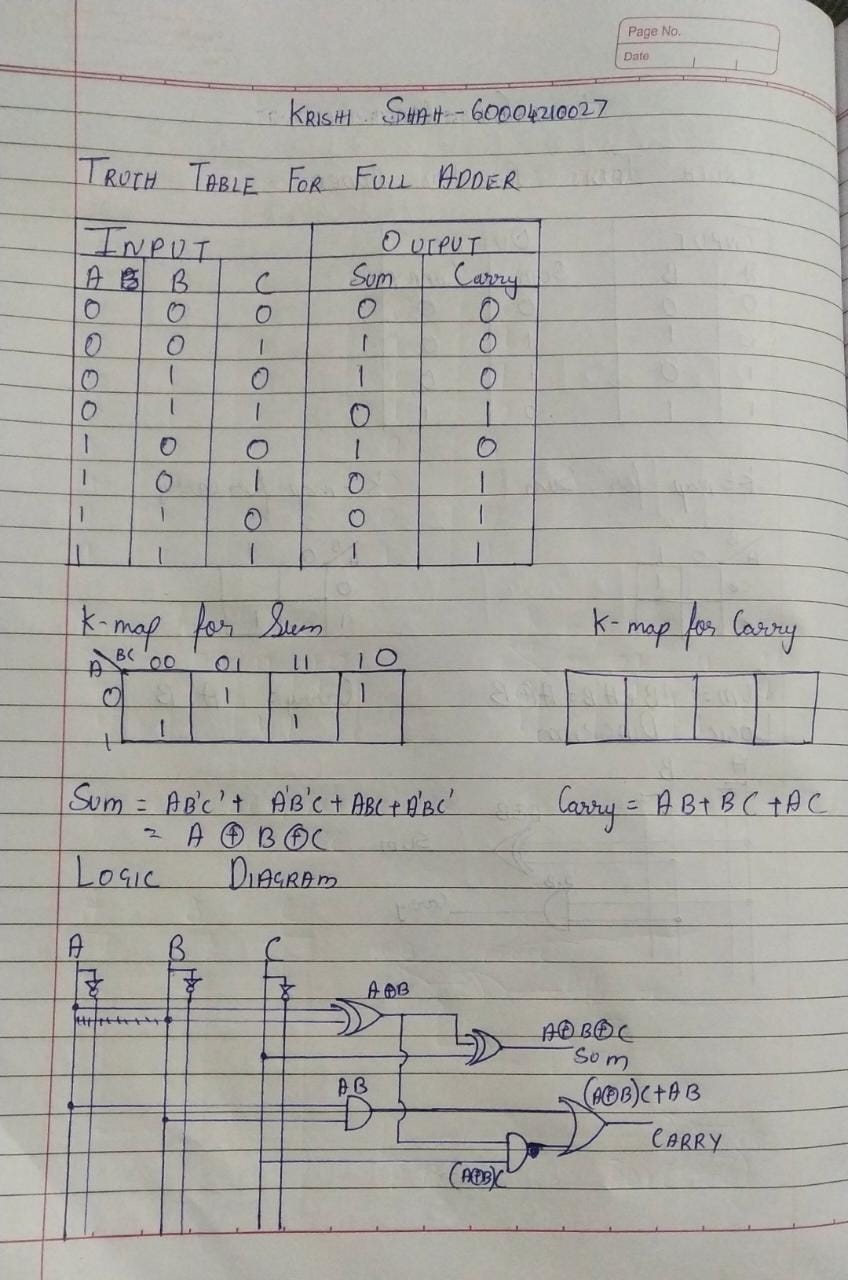 Page No.
Date
KRISHI SHAH - 60004210027
TRUTH TABLE FOR FULL ADDER
INPUT OUTPUT
A B C Sum Carry
0 0 0 0 0
0 0 1 1 0
0 1 0 1 0
0 1 1 0 1
1 0 0 1 0
1 0 1 0 1
1 1 0 0 1
1 1 1 1 1
K-map for Sum K-map for Carry
A BC 00 01 11 10
0 1 1
1 1 1
Sum = AB'C' + A'B'C + ABC + A'BC' Carry = AB + BC + AC
= A ⊕ B ⊕ C
LOGIC DIAGRAM
A B C
A⊕B
A⊕B⊕C
Sum
AB
(A⊕B)C + AB
CARRY
(A⊕B)C